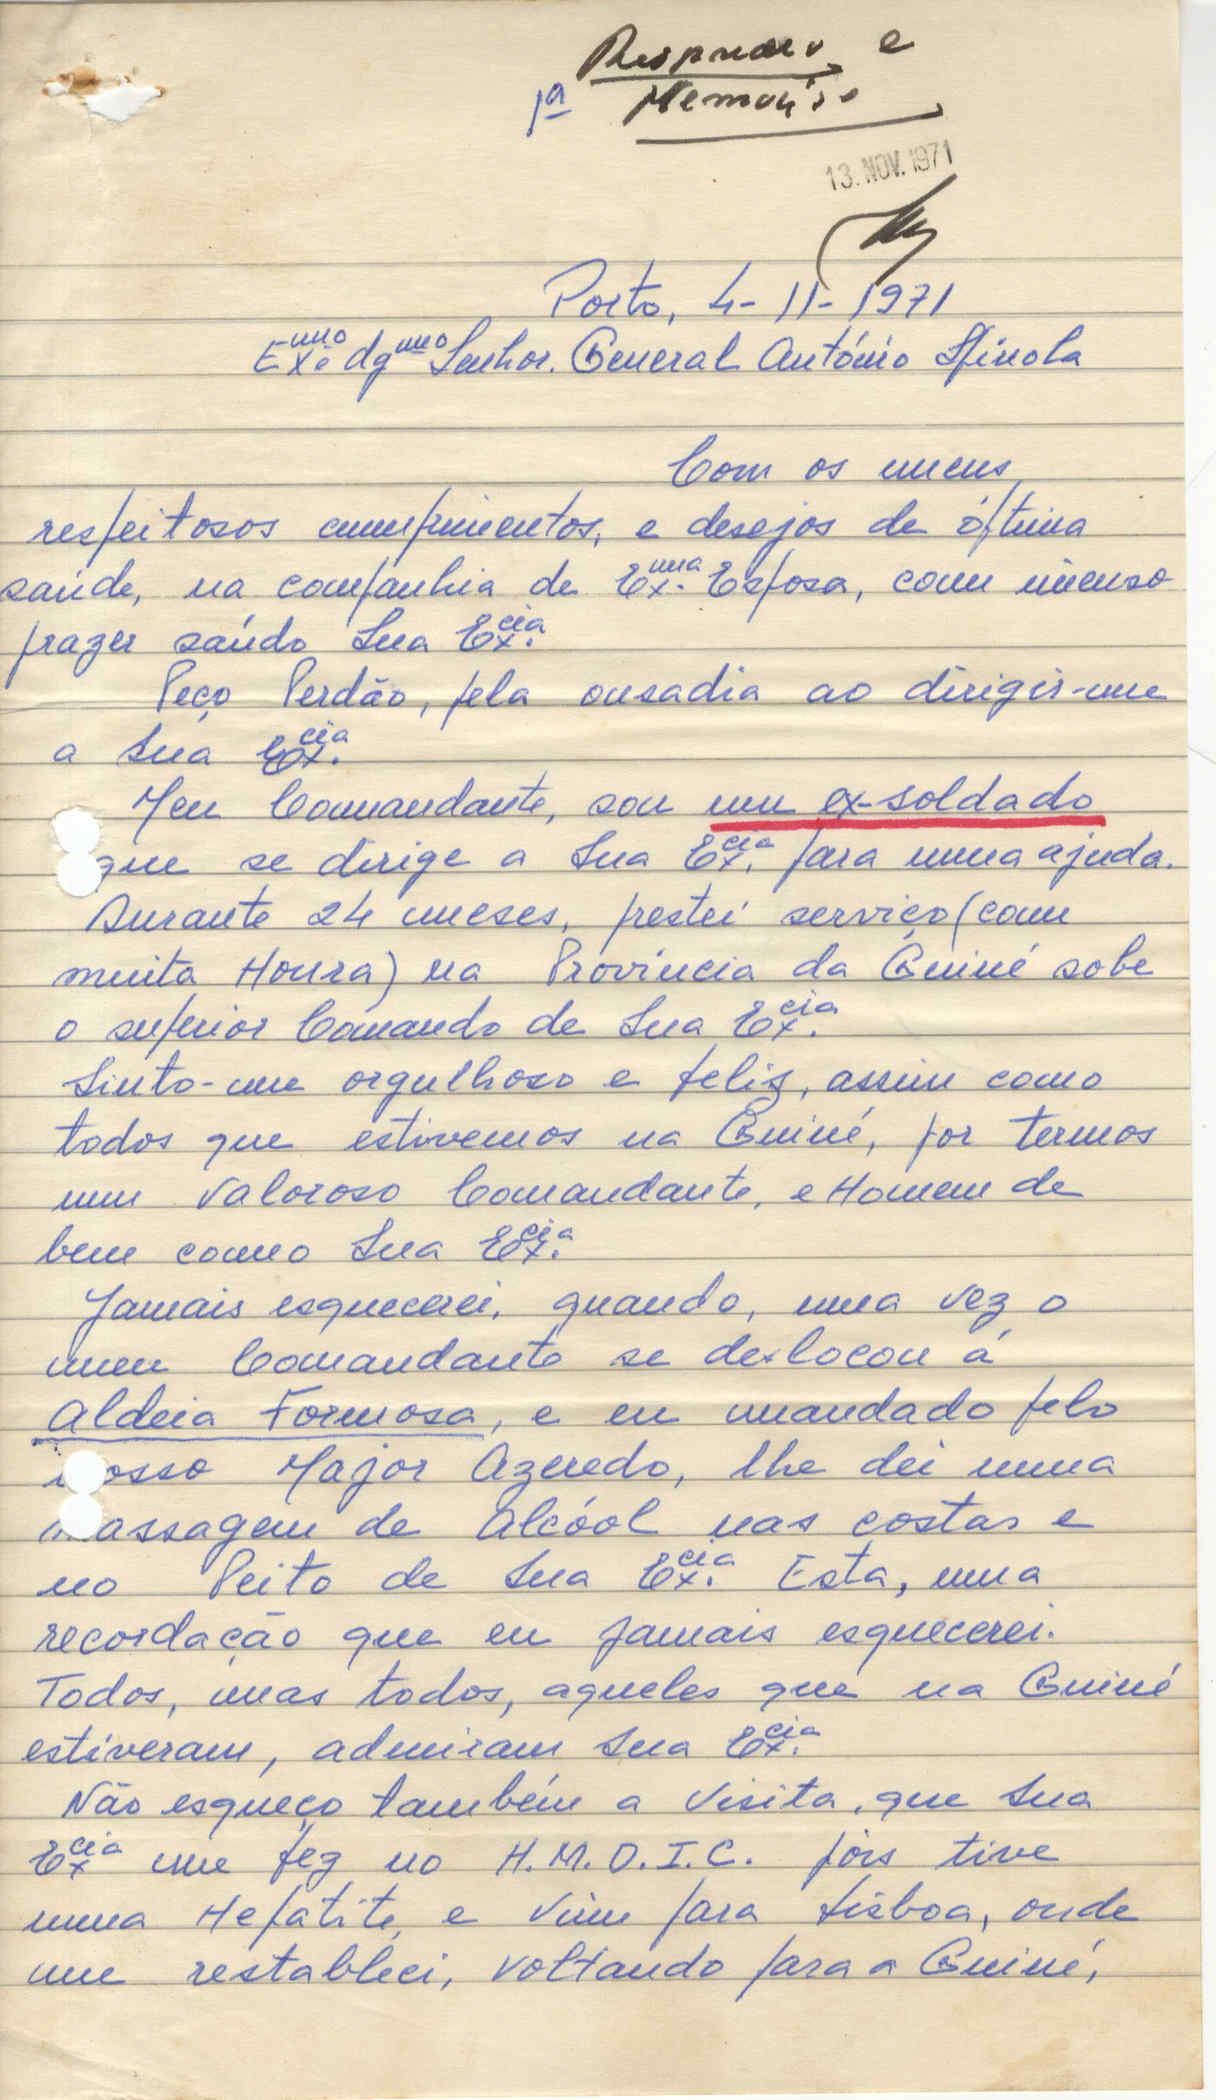 e
1ª Memória
13. NOV. 1971
Porto, 4-11-1971
Exmo. dgmo Senhor. General António Spínola
Com os meus
respeitosos cumprimentos, e desejos de óptima
saúde, na companhia de Exma. Esposa, com imenso
prazer saúdo Sua Excia.
Peço Perdão, pela ousadia ao dirigir-me
a Sua Excia.
Meu Comandante, sou um ex-soldado
que se dirige a Sua Excia. para uma ajuda.
Durante 24 meses, prestei serviço (com
muita Honra) na Província da Guiné sobe
o superior Comando de Sua Excia.
Sinto-me orgulhoso e feliz, assim como
todos que estivemos na Guiné, por termos
um valoroso Comandante, e Homem de
bem como Sua Excia.
Jamais esquecerei, quando, uma vez o
meu Comandante se deslocou á
Aldeia Formosa, e eu mandado pelo
nosso Major Azeredo, lhe dei uma
massagem de Alcóol nas costas e
no Peito de Sua Excia. Esta, uma
recordação que eu jamais esquecerei.
Todos, mas todos, aqueles que na Guiné
estiveram, admiram Sua Excia.
Não esqueço também a visita, que Sua
Excia me fez no H.M.D.I.C. pois tive
uma Hepatite, e vim para Lisboa, onde
me restableci, voltando para a Guiné,